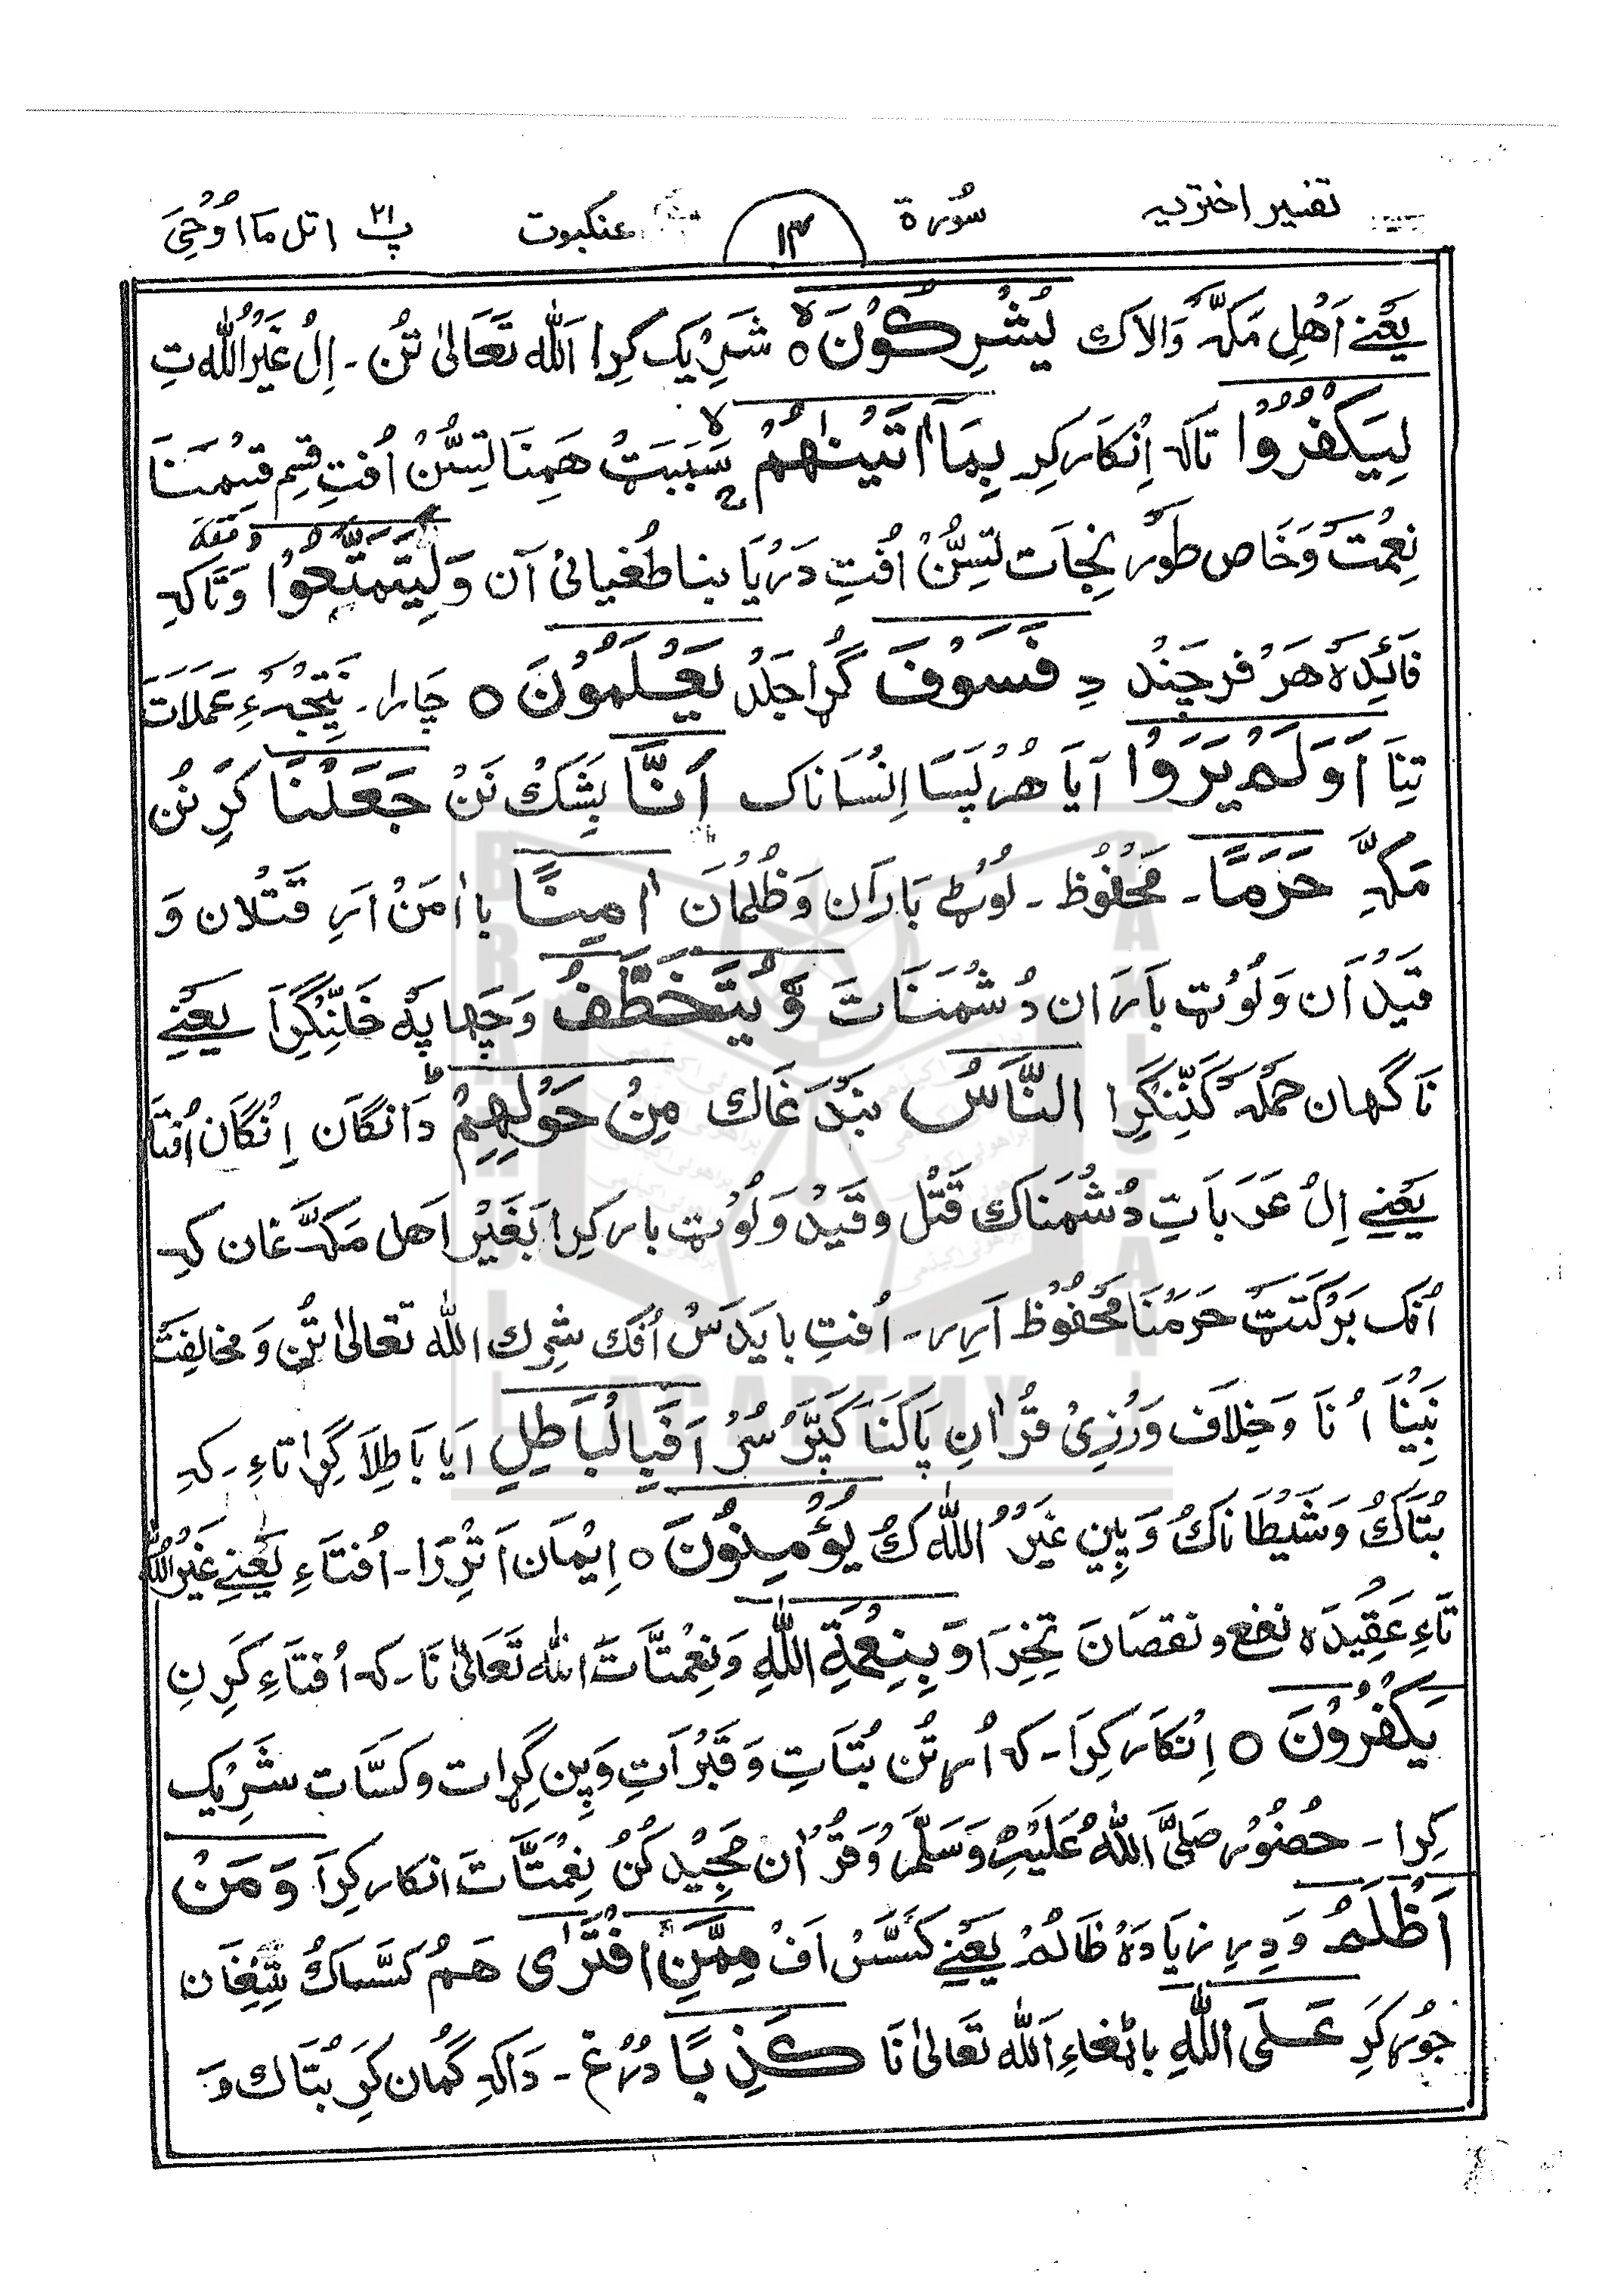 تفسیر اختریہ سُورۃ ۱۳ عنکبوت پ ۲۱ اتل ما اُوحِیَ
یَعْنے اَھْلِ مَکّہ وَالاک یُشْرِكُوْنَ ہ شَرِیْک کِرا اَللّٰہ تَعَالیٰ تُن ۔ اِلْ غَیْرُاللّٰہ تِ
لِيَكْفُرُوْا تاکہ اِنْکَار کِر بِمَآ اٰتَيْنٰهُمْ سَبَبَٹ ھَمِنَا لِسُّن اُفتِ قِسِم قِسْمنَا
نِعْمَت وَخَاص طور نِجَات لِسُّنْ اُفتِ دَرْیَا بنا طُغیانیْ آن وَلِيَتَمَتَّعُوْا وَتَاکہِ
فَائِدَہ ھَرْ فَر چَنْد دِ فَسَوْفَ گُڑا جَلد يَعْلَمُوْنَ ہ چَارا ۔ نَتِیْجہ ءِ عَمَلَات
تِنَا اَوَلَمْ يَرَوْا آیَا ھُرْلِیسَا اِنْسَاناک اَنَّا بِشَکْ نَنْ جَعَلْنَا کَرِ نُن
مَکّہِ حَرَمًا ۔ مَحْفُوظ ۔ لُوٹِ بَارَان وَظُلمُان اٰمِنًا با اَمَنْ اَرِ قَتْلان وَ
قَیْد اَن وَلُوْٹ بَارَان دُشْمَنَاتَ وَّيُتَخَطَّفُ وَچَہاپہ خَلِّنْگِرَا یَعْنِے
نَاگہان حَملہ کَنِّنْگِرا النَّاسُ بَنْدَغَاك مِنْ حَوْلِهِمْ دَانگَان اِنْگَان اُفْتَا
یَعْنے اِلْ عَرَبَاتِ دُشْمَناک قَتْل وقَیْد وَلُوْٹ بار کِرا بَغَیْر اَھل مَکّہ غان کہ
اُفک بَرْکَتَٹ حَرَمْنَا مَحْفُوظ اَرِر ۔ اُفتِ بایَدَسْ اُفک شِرْك اللّٰہ تَعَالیٰ تُن وَ مخالِفَت
نَبِیْنَا اُ نَا وَخِلَاف وَرْزِیْ قُرْاٰنِ پَاکَنَا کَپَّرْسُرْ اَفَبِالْبَاطِلِ ایا بَاطِلَا گِڑاتاءِ ۔ کہ
بُتَاكْ وَشَیْطَاناكْ وَپِین غَیْرُ اللّٰہ كْ يُؤْمِنُوْنَ ہ اِیْمَان اَتْرِرَا ۔ اُفتَاءِ یَعْنِے غَیْرُاللّٰہ
تَاءِ عَقِیدَہ نفع و نقصَانَ تِخِرَا وَبِنِعْمَةِ اللّٰهِ وَنِعْمتَاتَ اللّٰہ تَعَالیٰ نَا ۔ کہ اُفتَاءِ کَرِنِ
يَكْفُرُوْنَ ہ اِنْکَار کِرَا ۔ کہ اُرہ تُن بُتَاتِ وَقَبْرَاتِ وَپِین گِڑات وکَسَّات شَرِیک
کِرا ۔ حُضُوْر صَلَّی اللّٰہُ عَلَیْہِ وَسَلَّمَ وَقُرْاٰن مَجِیْد کُنْ نِعْمَتَّاتَ انکار کِرَا وَمَنْ
اَظْلَمُ وَدِر زِیَادَہ ظَالمْ یَعْنِے کَسَّسْ اَفْ مِمَّنِ افْتَرٰى ھَمُ کَسَّاكْ شِغَان
جوْڑ کَرِ عَلَى اللّٰهِ باٹھاءِ اَللّٰہ تَعَالیٰ نَا كَذِبًا دُرْغ ۔ دَاکہ گُمان کَرِ بُتَاك وَ